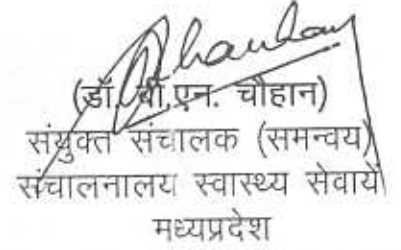 (डॉ. बी.एन. चौहान)
संयुक्त संचालक (समन्वय)
संचालनालय स्वास्थ्य सेवायें
मध्यप्रदेश